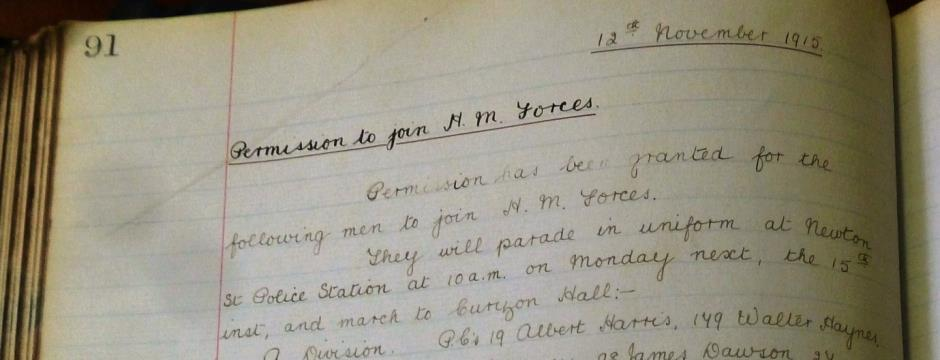 91
12th November 1915.
Permission to join H. M. Forces.
Permission has been granted for the
following men to join H. M. Forces.
They will parade in uniform at Newton
St Police Station at 10 a.m. on Monday next, the 15th
inst, and march to Curzon Hall:-
Division. P.C's 19 Albert Harris, 149 Walter Haynes,
James Dawson